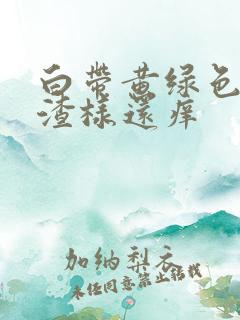 白带黄绿色
渣样还痒
加纳梨衣
未经同意禁止转载